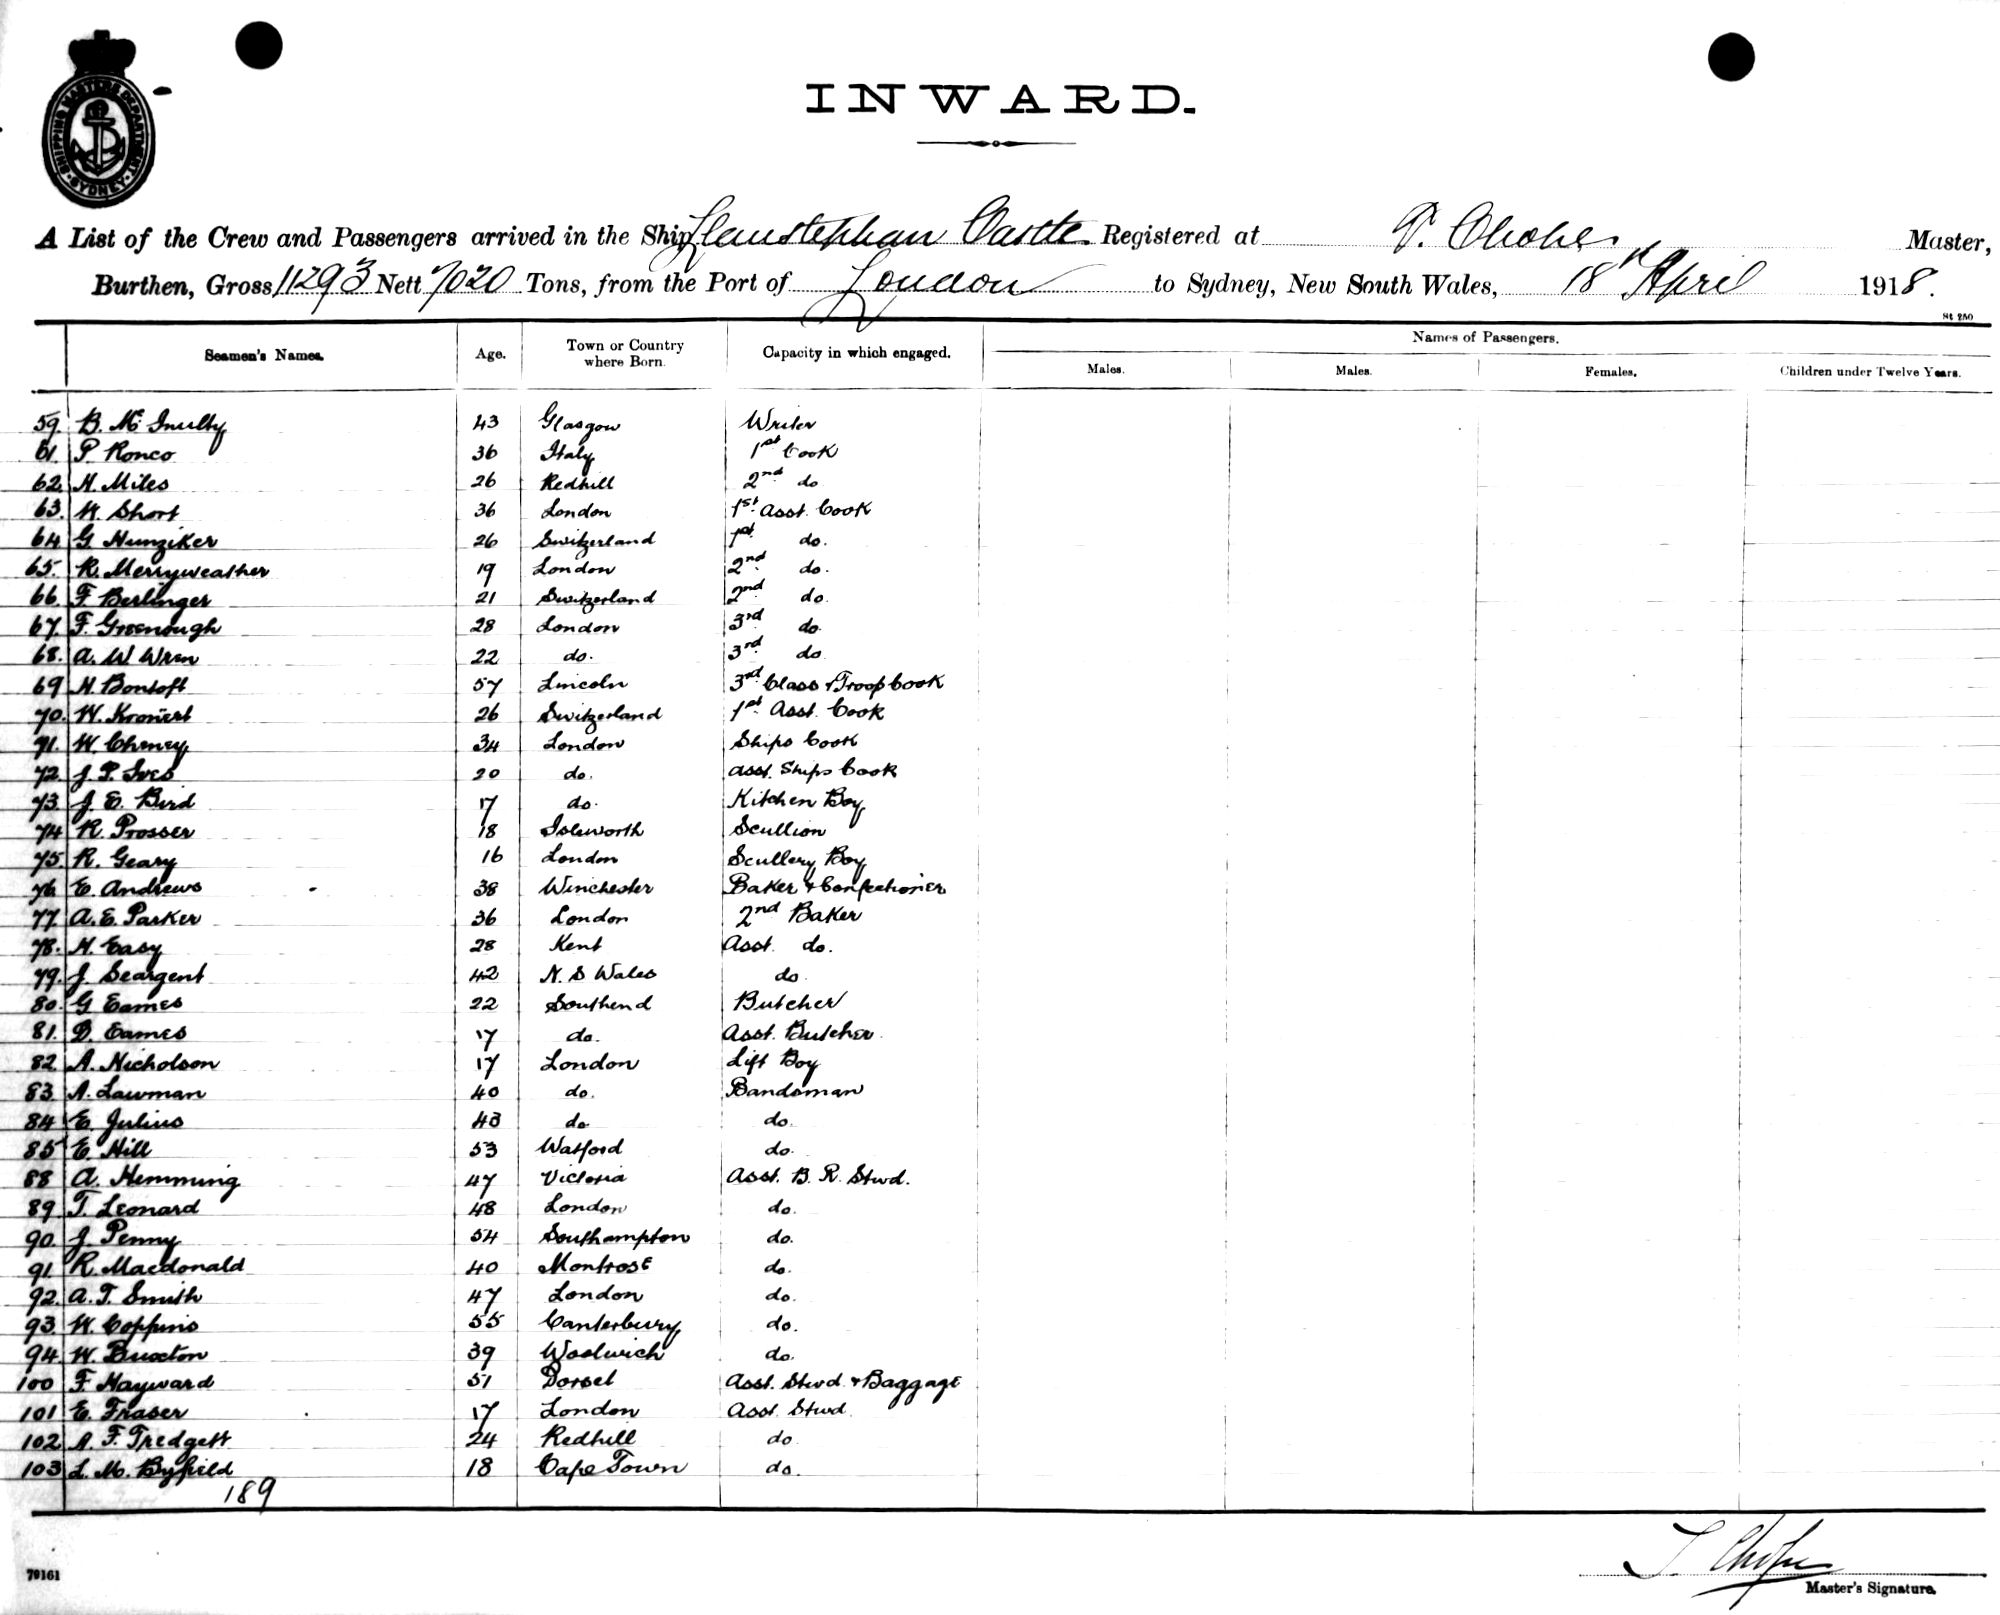 SHIPPING MASTERS DEPARTMENT SYDNEY
INWARD.
A List of the Crew and Passengers arrived in the Ship Llanstephan Castle Registered at Master,
Burthen, Gross 11293 Nett 7020 Tons, from the Port of London to Sydney, New South Wales, 18th April 1918.
St 250
Seamen's Names. Age. Town or Country where Born. Capacity in which engaged. Names of Passengers.
Males. Males. Females. Children under Twelve Years.
59. B. Mc Inulty 43 Glasgow Writer
61. P. Ronco 36 Italy 1st Cook
62. H. Miles 26 Redhill 2nd do
63. W. Short 36 London 1st Asst. Cook
64 G. Hunziker 26 Switzerland 1st do.
65. R. Merryweather 19 London 2nd do.
66. F. Berlinger 21 Switzerland 2nd do.
67. F. Greenough 28 London 3rd do.
68. A. W Wren 22 do. 3rd do
69 H. Bontoft 57 Lincoln 3rd Class & Troop Cook
70. W. Kronert 26 Switzerland 1st Asst. Cook
71. W. Cheney 34 London Ships Cook
72. J. P. Ives 20 do. Asst. Ships Cook
73. J. E. Bird 17 do. Kitchen Boy
74 R. Prosser 18 Isleworth Scullion
75. R. Geary 16 London Scullery Boy
76 E. Andrews 38 Winchester Baker & Confectioner
77. A. E. Parker 36 London 2nd Baker
78. H. Easy 28 Kent Asst. do.
79. J. Seargent 42 N. S Wales do
80. G Eames 22 Southend Butcher
81. D. Eames 17 do. Asst. Butcher
82. A. Nicholson 17 London Lift Boy
83 A. Lawman 40 do. Bandsman
84 E. Julius 43 do do.
85 E. Hill 53 Watford do.
88 A. Hemming 47 Victoria Asst. B. R. Stwd.
89. T. Leonard 48 London do.
90. J. Penny 54 Southampton do.
91. R. Macdonald 40 Montrose do.
92. A. T. Smith 47 London do.
93. W. Coppins 55 Canterbury do.
94. W. Buxton 39 Woolwich do.
100 F. Hayward 51 Dorset Asst. Stwd & Baggage
101 E. Fraser 17 London Asst Stwd
102 A. F. Tredgett 24 Redhill do
103 L. M. Byfield 18 Cape Town do.
189
70161
Master's Signature.